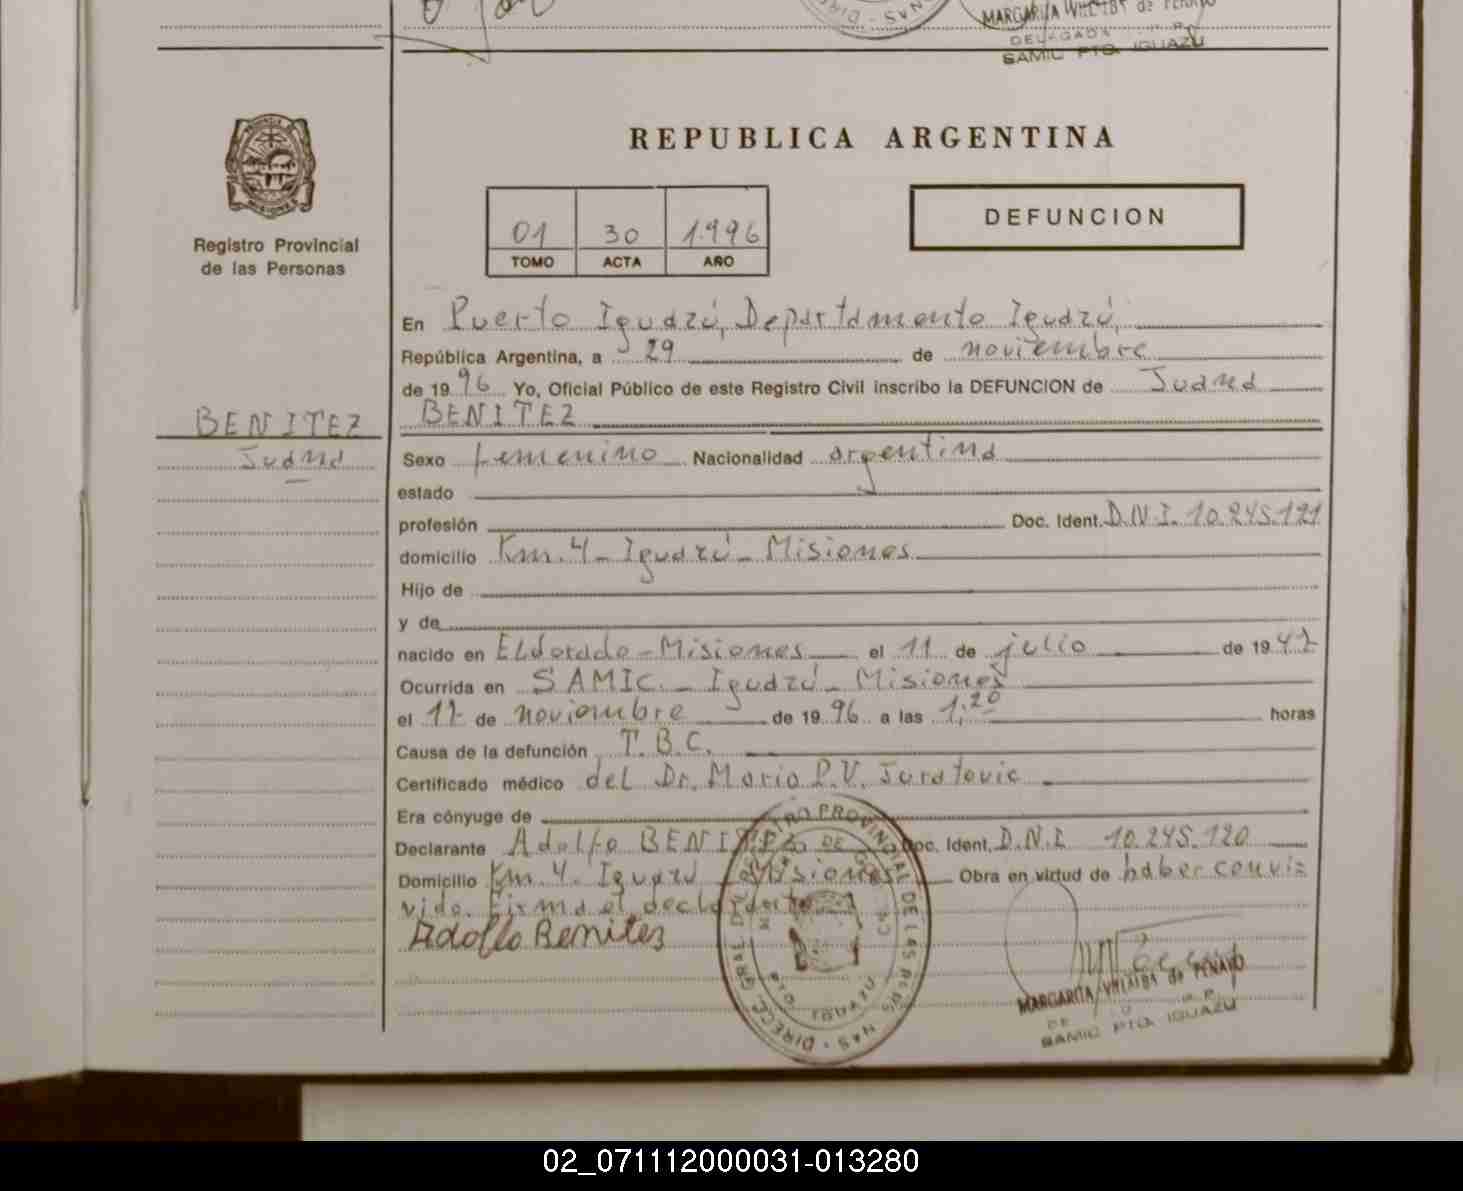 MARGARITA VILLALBA de PENAYO
DELEGADA
SAMIC PTO. IGUAZU
Registro Provincial
de las Personas
BENITEZ
Juana
REPUBLICA ARGENTINA
01 30 1.996
TOMO ACTA AÑO
DEFUNCION
En Puerto Iguazú, Departamento Iguazú,
República Argentina, a 29 de noviembre
de 1996 Yo, Oficial Público de este Registro Civil inscribo la DEFUNCION de Juana
BENITEZ
Sexo femenino Nacionalidad argentina
estado
profesión Doc. Ident. D.N.I. 10.245.121
domicilio Km. 4 - Iguazú - Misiones
Hijo de
y de
nacido en Eldorado - Misiones el 11 de julio de 1947
Ocurrida en SAMIC. - Iguazú - Misiones
el 17 de noviembre de 1996 a las 1,20 horas
Causa de la defunción T.B.C.
Certificado médico del Dr. Mario P.V. Juratovic
Era cónyuge de
Declarante Adolfo BENITEZ Doc. Ident. D.N.I. 10.245.120
Domicilio Km. 4. Iguazú - Misiones Obra en virtud de haber convi
vido. Firma el declarante
Adolfo Benites
MARGARITA VILLALBA de PENAYO
SAMIC PTO. IGUAZU
02_071112000031-013280